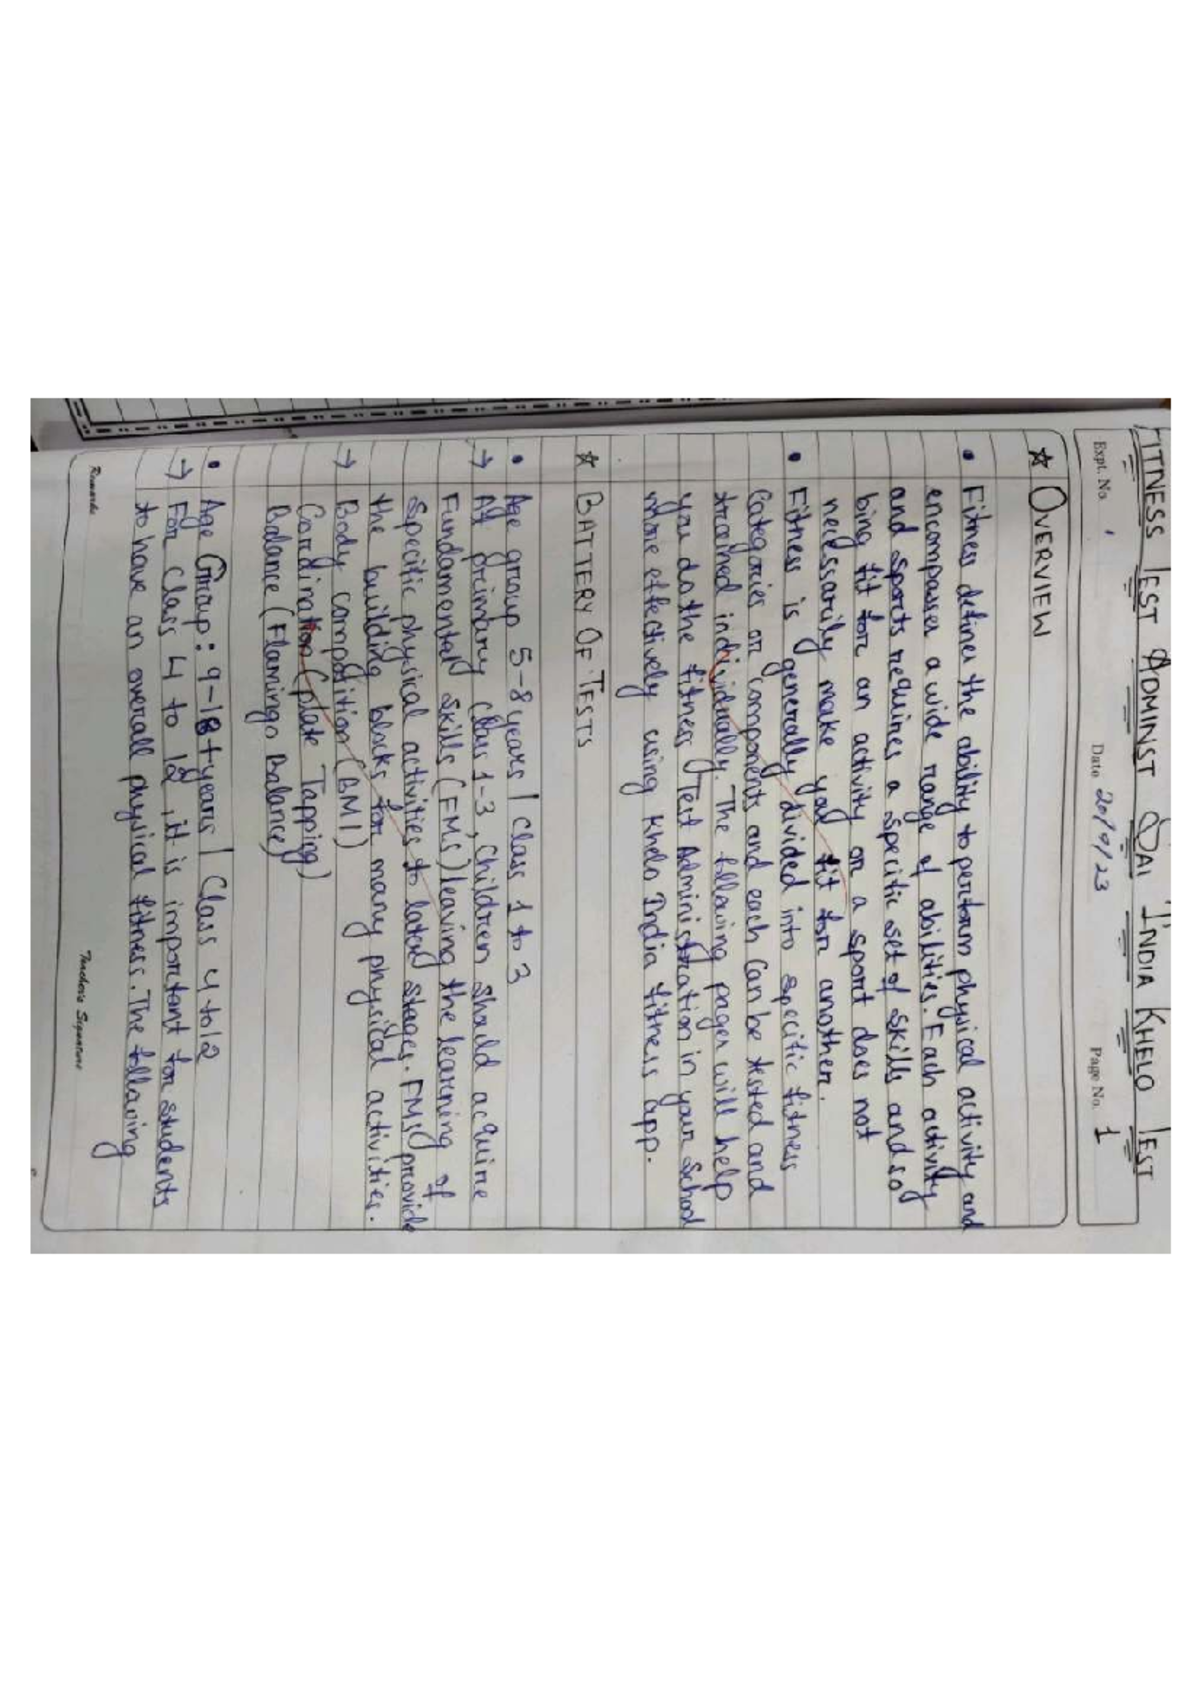 FITNESS TEST ADMINST SAI INDIA KHELO TEST
Expt. No. 1 Date 20/9/23 Page No. 1
☆ OVERVIEW
• Fitness defines the ability to perform physical activity and
encompasses a wide range of abilities. Each activity
and sports requires a specific set of skills and so
bing fit for an activity on a sport does not
necessarily make you fit for another.
• Fitness is generally divided into specific fitness
Categories or components and each can be tested and
trained individually. The following pages will help
you do the fitness Test Administration in your School
more effectively using Khelo India fitness app.
☆ BATTERY OF TESTS
• Age group 5-8 years | Class 1 to 3
→ At primary class 1-3, Children should acquire
Fundamental Skills (FMS) leaving the learning of
Specific physical activities to later stages. FMS provide
the building blocks for many physical activities.
→ Body composition (BMI)
Cordination (plate Tapping)
Balance (Flamingo Balance)
• Age Group: 9-18+years | Class 4 to 12
→ For class 4 to 12, it is important for students
to have an overall physical fitness. The following
Remarks Teacher's Signature